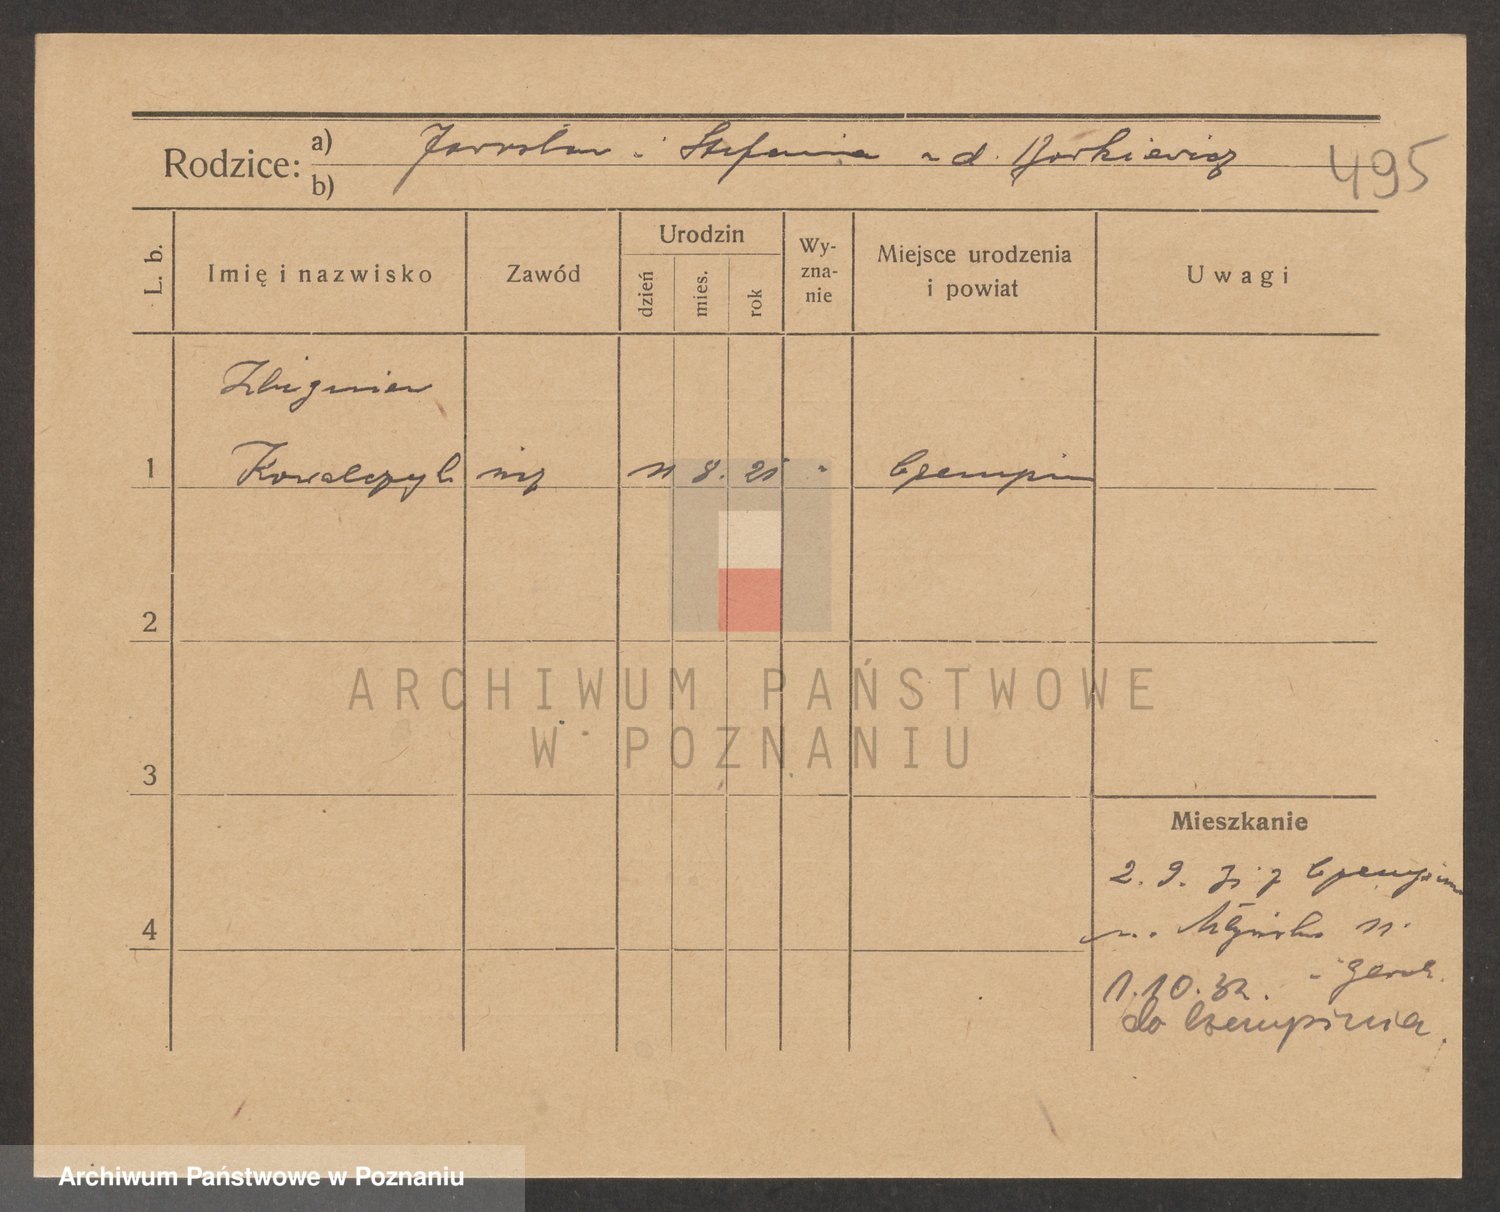 Rodzice: a) Jarosław i Stefania z d. Borkiewicz
b)
495
L. b.
Imię i nazwisko
Zawód
Urodzin
dzień
mies.
rok
Wy-
zna-
nie
Miejsce urodzenia
i powiat
Uwagi
Zbigniew
1 Kowalczyk 11 8. 21 Czempin
2
ARCHIWUM PAŃSTWOWE
W POZNANIU
3
Mieszkanie
2. 9. z Czempinia
4 11.
1.10.32.
do Czempinia
Archiwum Państwowe w Poznaniu